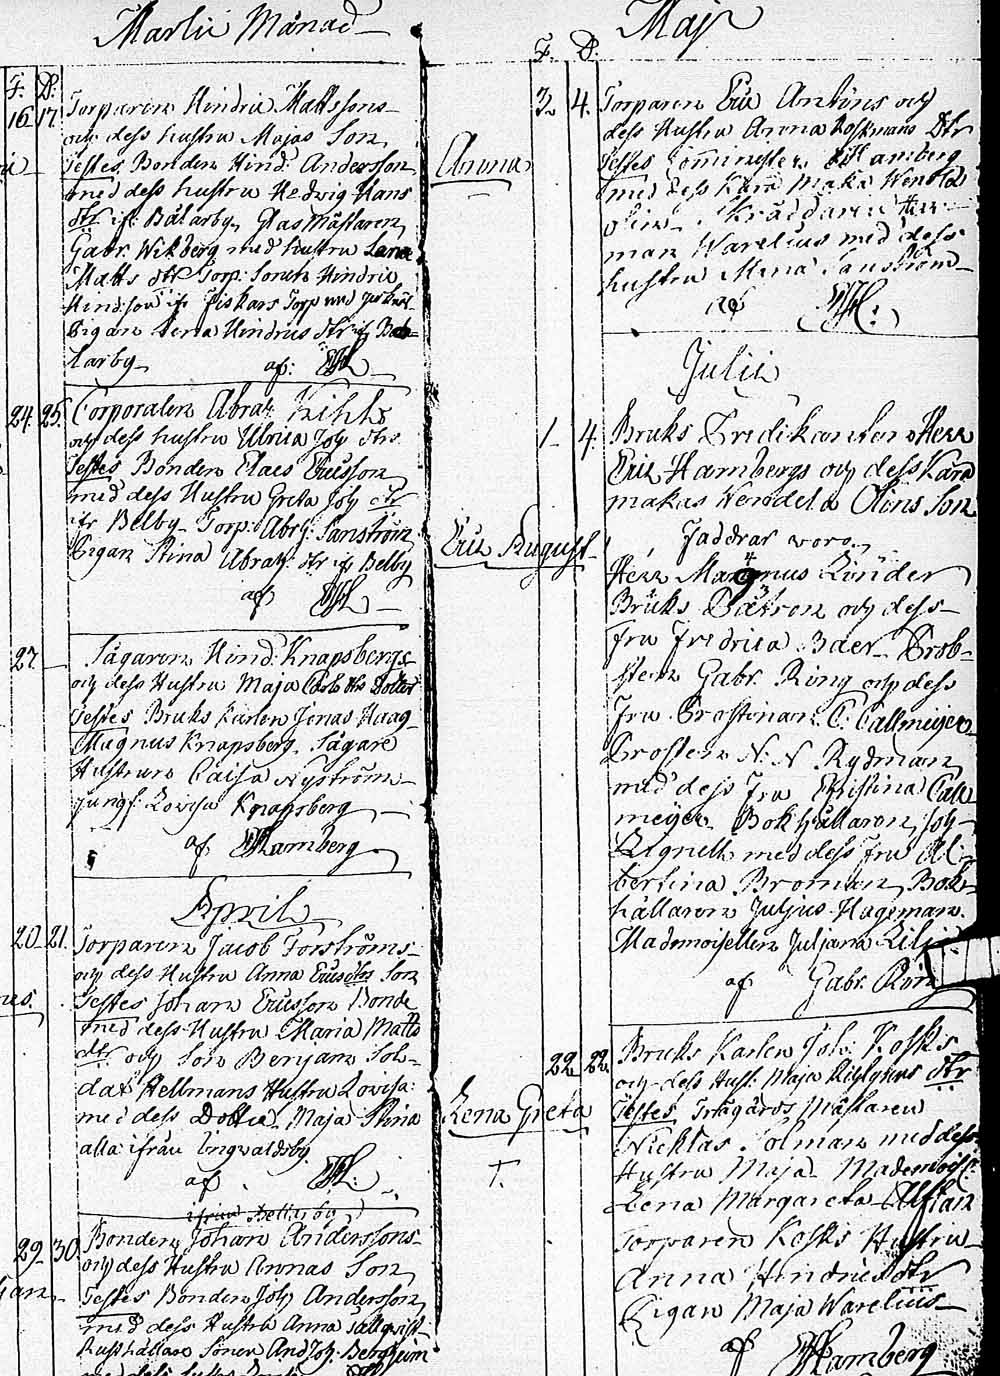 Martii Månad
F. D.
16 17. Torparen Hindric Mattssons
och dess hustru Majas Son
Testes Bonden Hind: Andersson
med dess hustru Hedwig Hans
dtr if: Bälarby. Glas Mästaren
Gabr. Wikberg med hustru Lena
Matts dtr Torp: Sonen Hindric
Hindsson if Fiskars Torp med
Pigan Lena Hindrics dtr if Bä-
larby af: EH
24. 25. Corporalen Abrah: Kihls
och dess hustru Ulrica Joh dtrs
Testes Bonden Claes Ericsson
med dess Hustru Greta Joh dtr
ifr Belby Torp: Abrh: Sanström
Pigan Stina Abrah: dtr if Belby
af EH
27. Sågaren Hind: Knapsbergs
och dess Hustru Maja dotter
Testes Bruks Karlen Jonas Haag
Magnus Knapsberg. Sågare
Hustrun Caisa Nyström
Jungf: Lovisa Knapsberg
af EHamberg
April
20 21. Torparen Jacob Forströms
och dess Hustru Anna Ericsdtrs Son
Testes Johan Ericsson Bonde
med dess Hustru Maria Matts
dtr och Son Benjam Sol-
dat Hellmans Hustru Lovisa
med dess Dotter Maja Stina
alla ifrån Ingvaldsby
af EH:
29. 30. Bonden Johan Anderssons
och dess Hustru Annas Son
Testes Bonden Joh Andersson
med dess Hustru Anna
Rusthållare Sonen And Joh:
Maji
F. D.
3. 4. Torparen Eric Antins och
dess Hustru Anna Koskmans Dtr
Anna
Testes Comminister E Hamberg
med dess Kära Maka Wendla
Olin Skräddaren Her-
man Warelius med dess
hustru Mina Sanström
af EH:
Julii
1 4. Bruks Predikanten Herr
Eric Hambergs och dess Kära
makas Wendela Olins Son
Eric August
Faddrar woro
Herr Magnus Linder
Bruks Patron och dess
Fru Fredrica Baer Prob-
sten Gabr. Ring och dess
Fru Prostinan C. Callmeijer
Prosten N. N Rydman
med dess Fru Christina Call
meijer Bokhållaren Joh
Lignell med dess Fru Al-
bertina Broman Bok-
hållaren Juljus Hageman.
Mademoisellen Juljana Lilje
af Gabr. Ring
22 22. Bruks Karlen Joh: Kosks
och dess Hust: Maja dtr
Lena Greta
Testes Trägårds Mästaren
Nicklas Solman med dess
Hustru Maja Mademois:
Lena Margareta Alftan
Torparen Kosks Hustru
Anna Hindrics dtr
Pigan Maja Warelius
af EHamberg